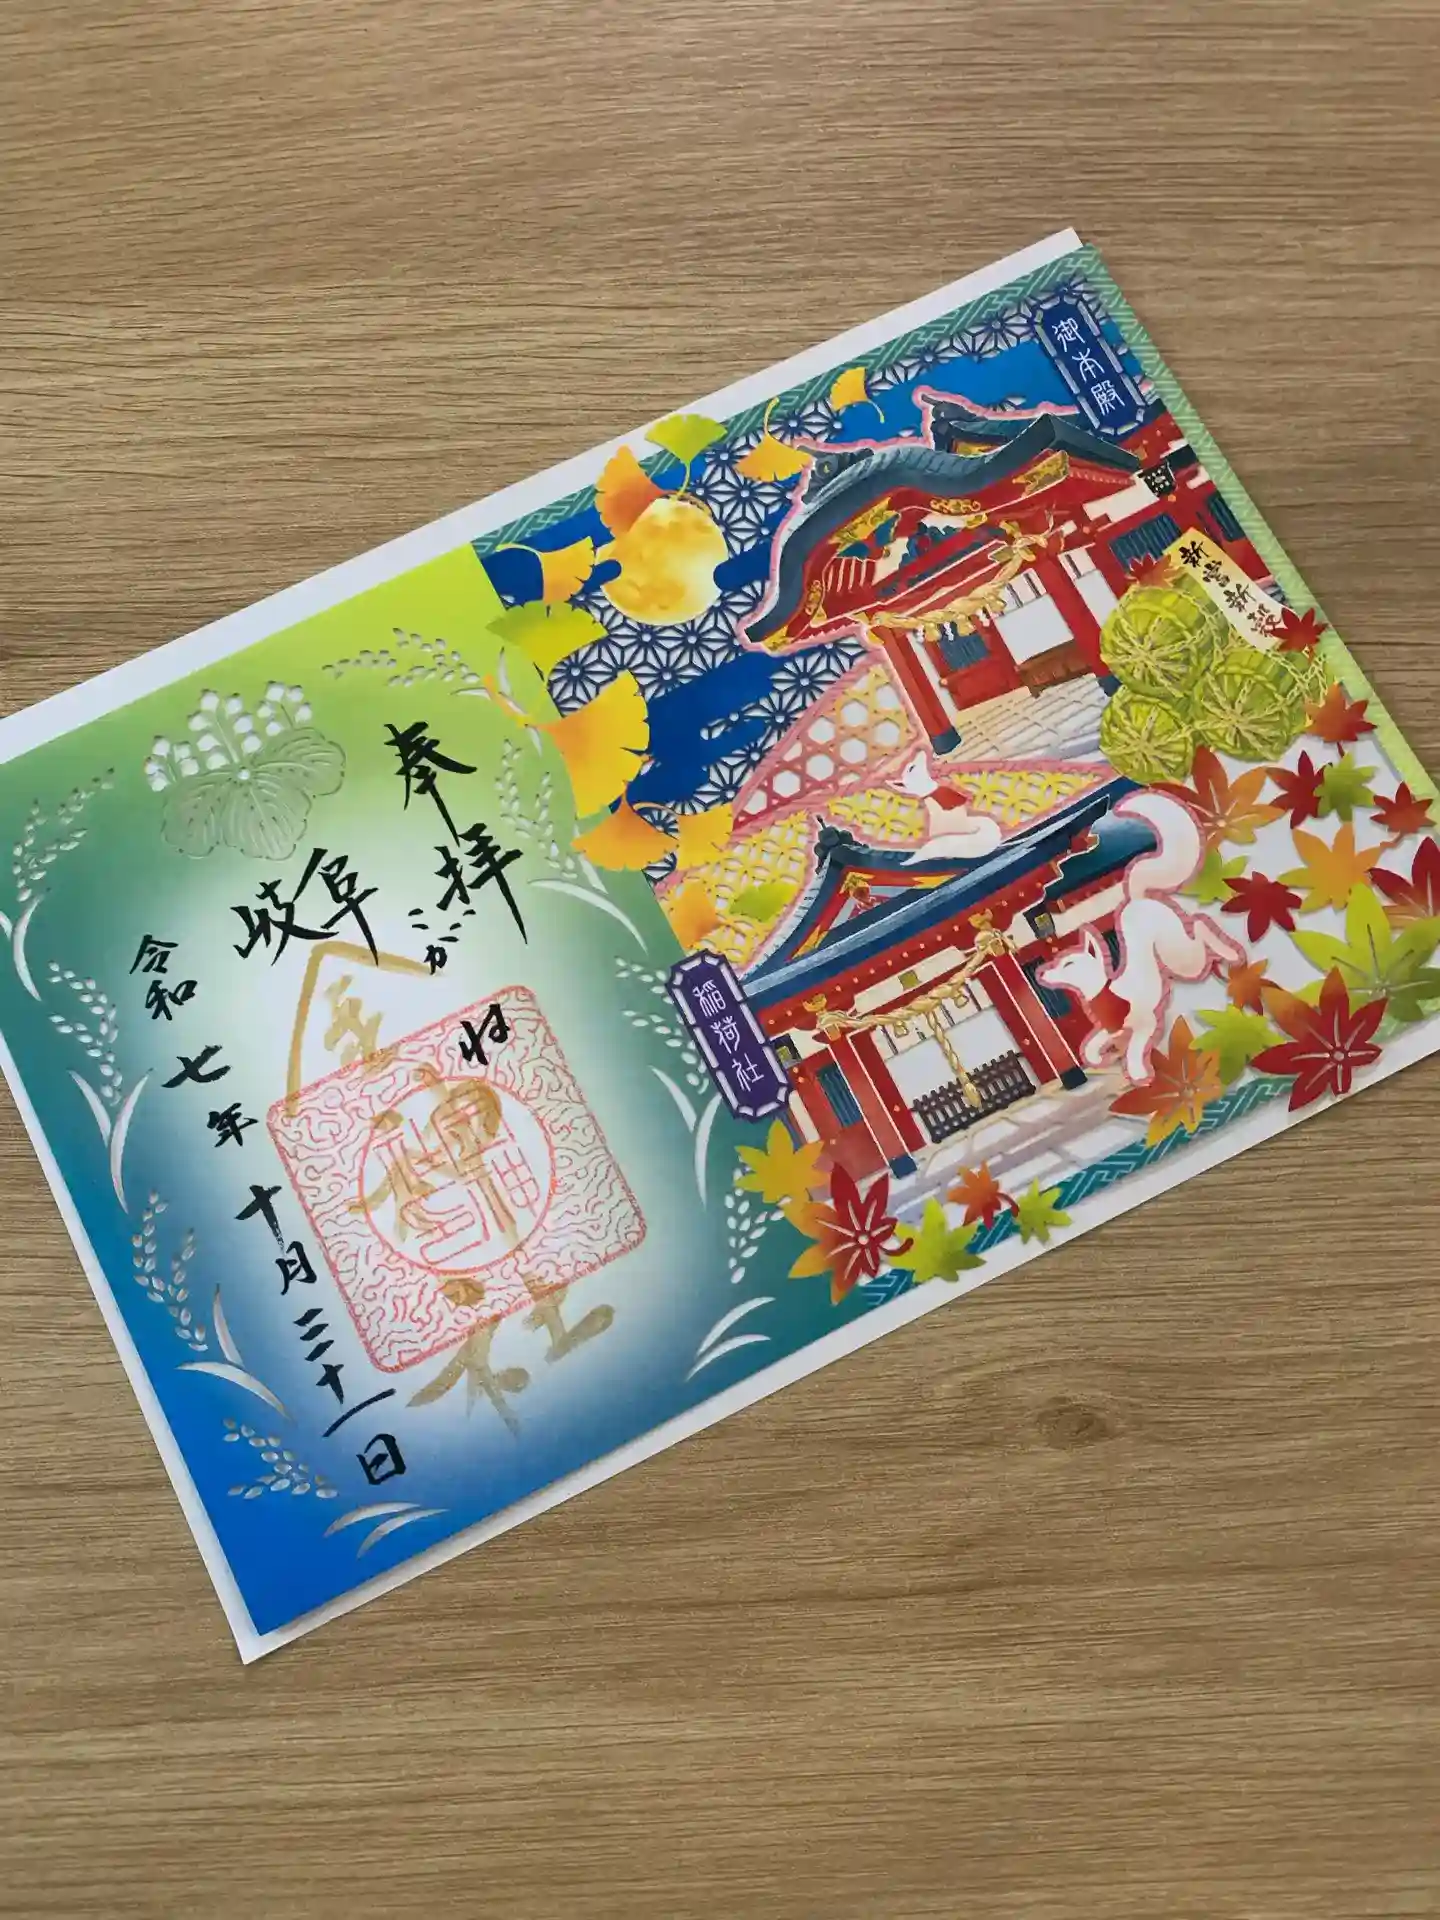 御本殿
新嘗新穀
稲荷社
奉拝
こがね
岐阜
金神社
令和七年十月三十一日